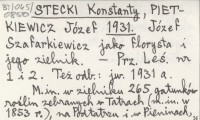 81/065/
0850
STECKI Konstanty, PIET-
KIEWICZ Józef 1931. Józef
Szafarkiewicz jako florysta i
jego zielnik. — Prz. Leś. nr
1 i 2. Też odb: jw. 1931 a.
M.in. w zielniku 265 gatunków
roślin zebranych w Tatrach (m.in. w
1853 r.), na Podtatrzu i w Pieninach.